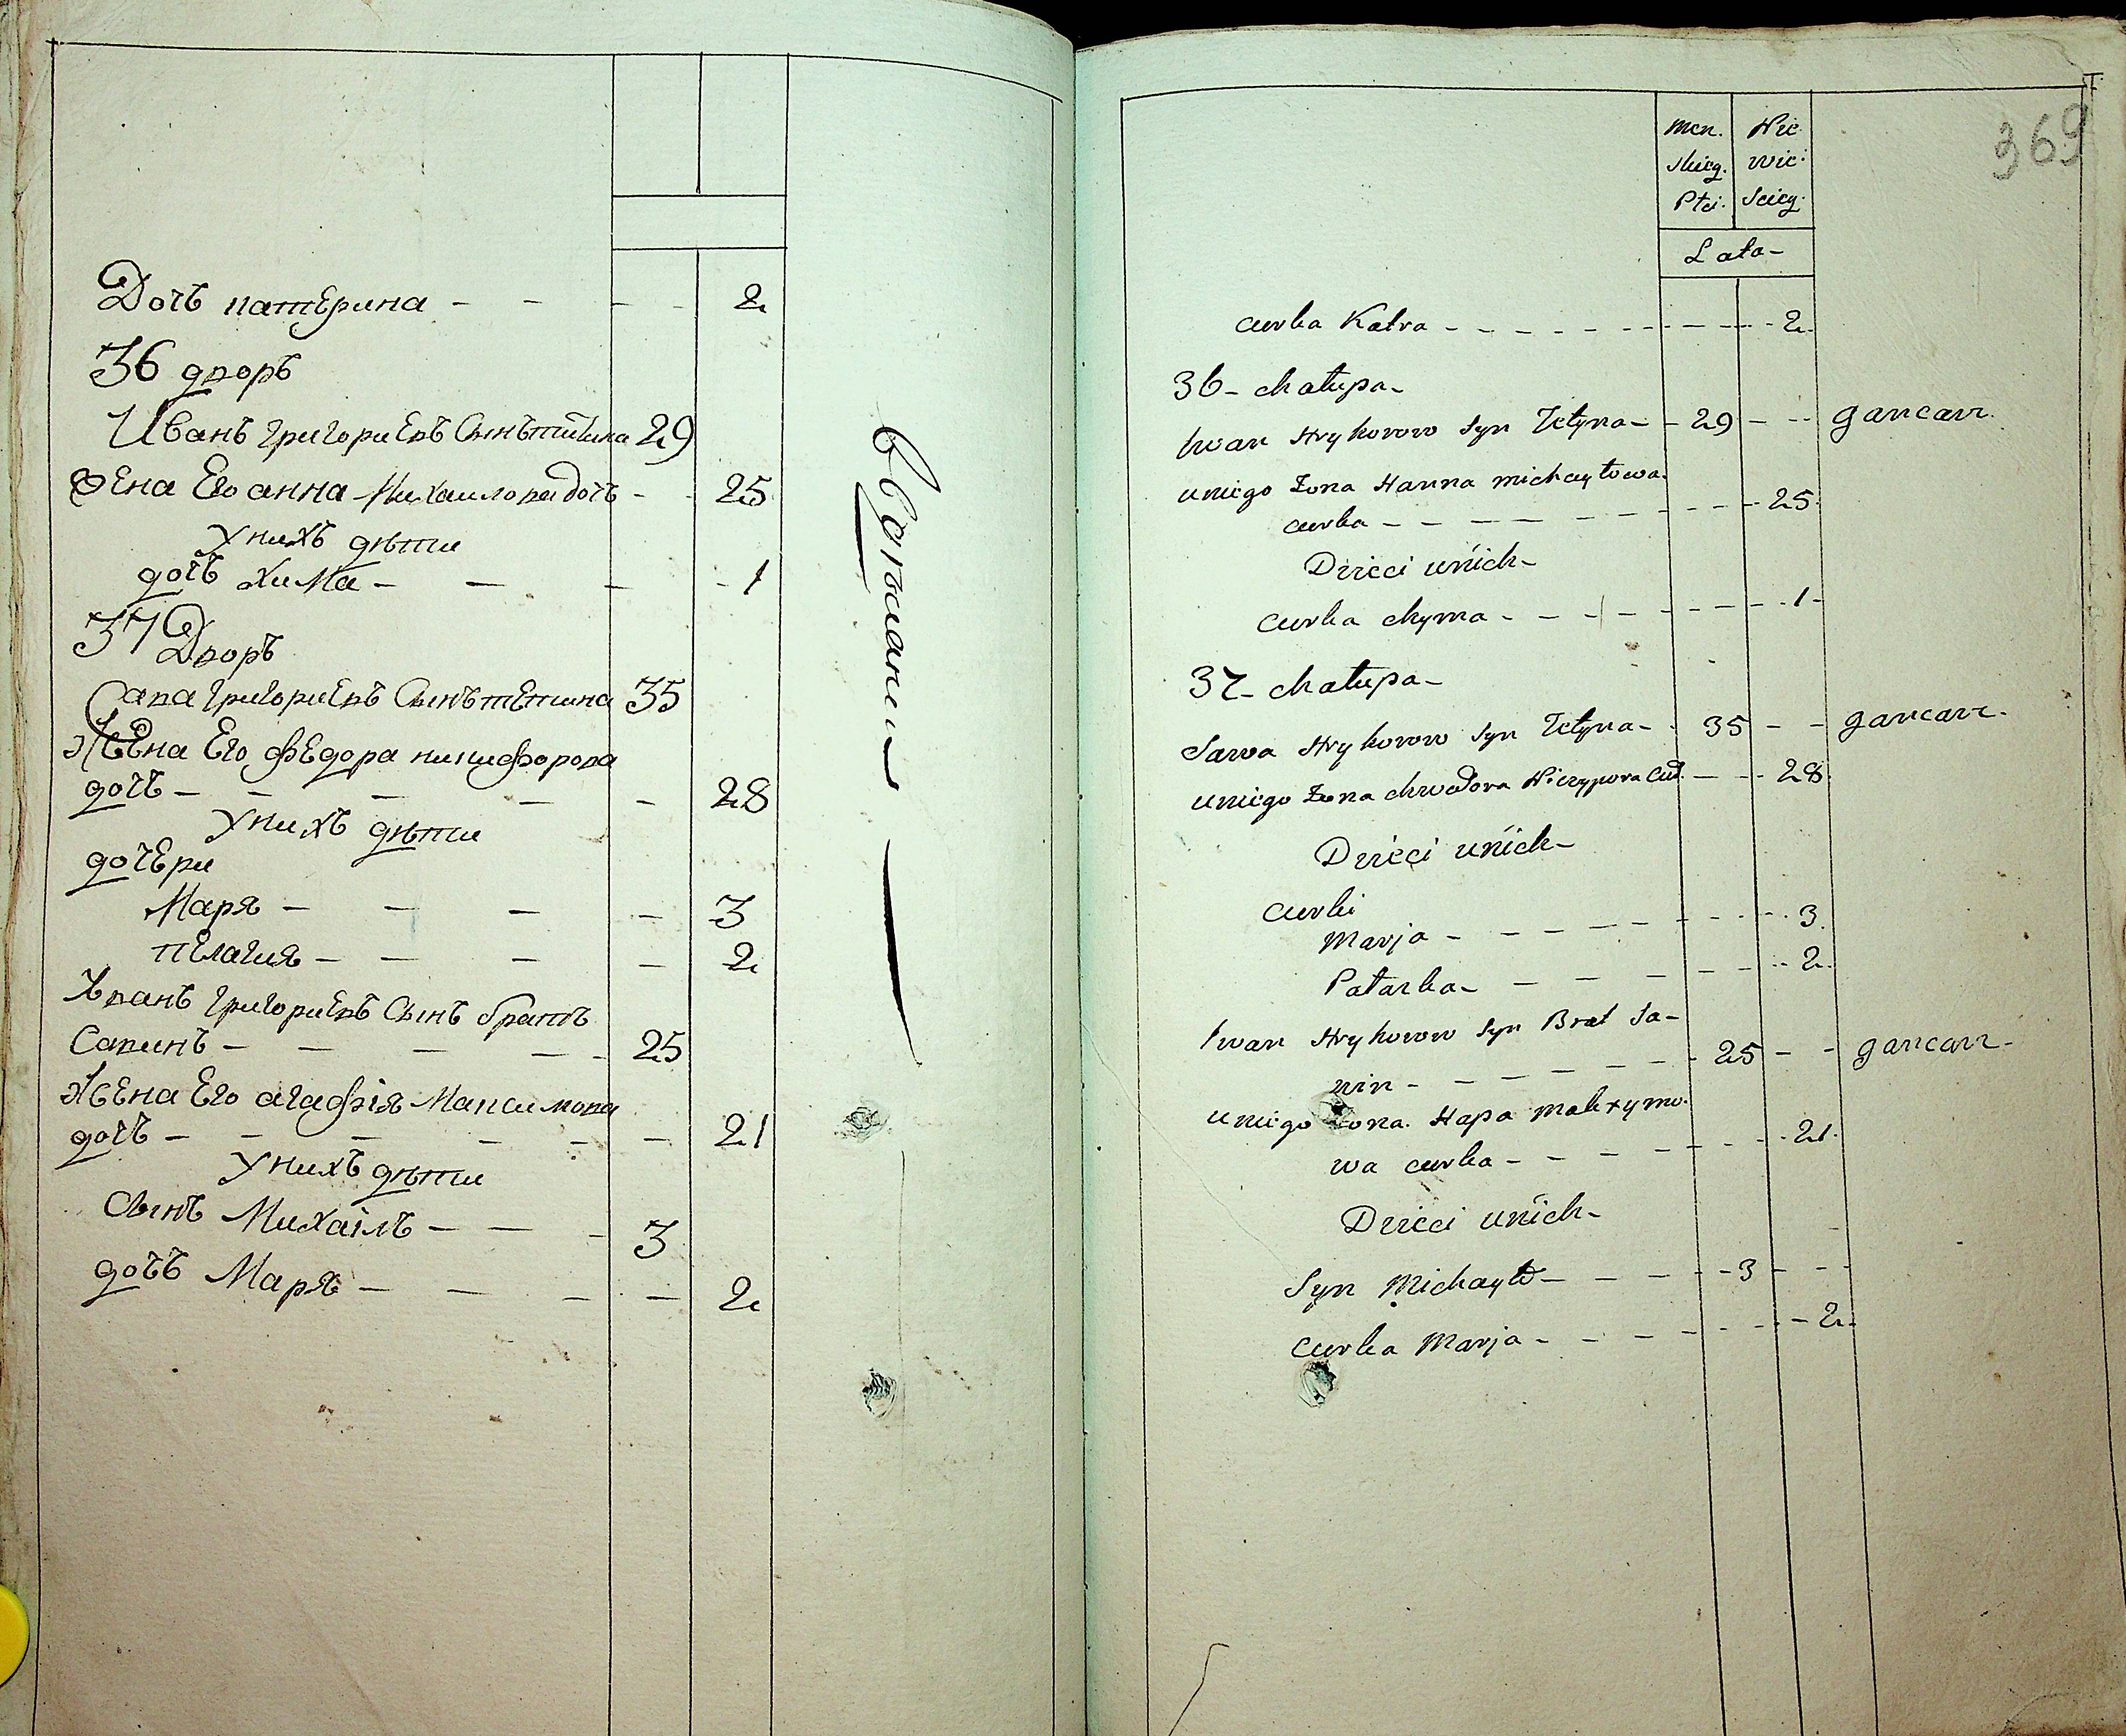 Дочъ катерина - - - - 2
36 дворъ
Иванъ григориевъ Сынъ тетина 29
жена Его анна Михаилова дочъ - - 25
У нихъ дѣти
дочъ Хима - - - - 1
37 Дворъ
Сава григориевъ Сынъ тетина 35
Жена Его федора никифорова
дочъ - - - - - 28
У нихъ дѣти
дочери
Маря - - - - 3
пелагия - - - - 2
Иванъ григориевъ Сынъ братъ
Савинъ - - - - - 25
Жена Его агафія Максимова
дочъ - - - - - - 21
У нихъ дѣти
Сынъ Михаилъ - - - 3
дочъ Маря - - - - 2
369
Men. Nie
skieg. wie:
Płci. Scieg.
Lata -
curka Katra - - - - - 2.
36 - chałupa -
Iwan Hrykorow Syn Tetyna - - 29 - - gancarz.
u niego Żona Hanna michayłowa
curka - - - - - - 25.
Dzieci u nich -
curka chyma - - - - - 1 -
37 - chałupa -
Sawa Hrykorow Syn Tetyna - 35 - - gancarz -
u niego Żona chwedora Niczypora Cur. - - - 28.
Dzieci u nich -
curki
Marja - - - - - 3.
Pałaska - - - - - 2.
Iwan Hrykorow Syn Brat Sa-
win - - - - - - 25 - - gancarz -
u niego Żona. Hapa Makzymo.
wa curka - - - - - 21.
Dzieci u nich -
Syn Michayło - - - - 3 - - -
curka Marja - - - - - - 2.